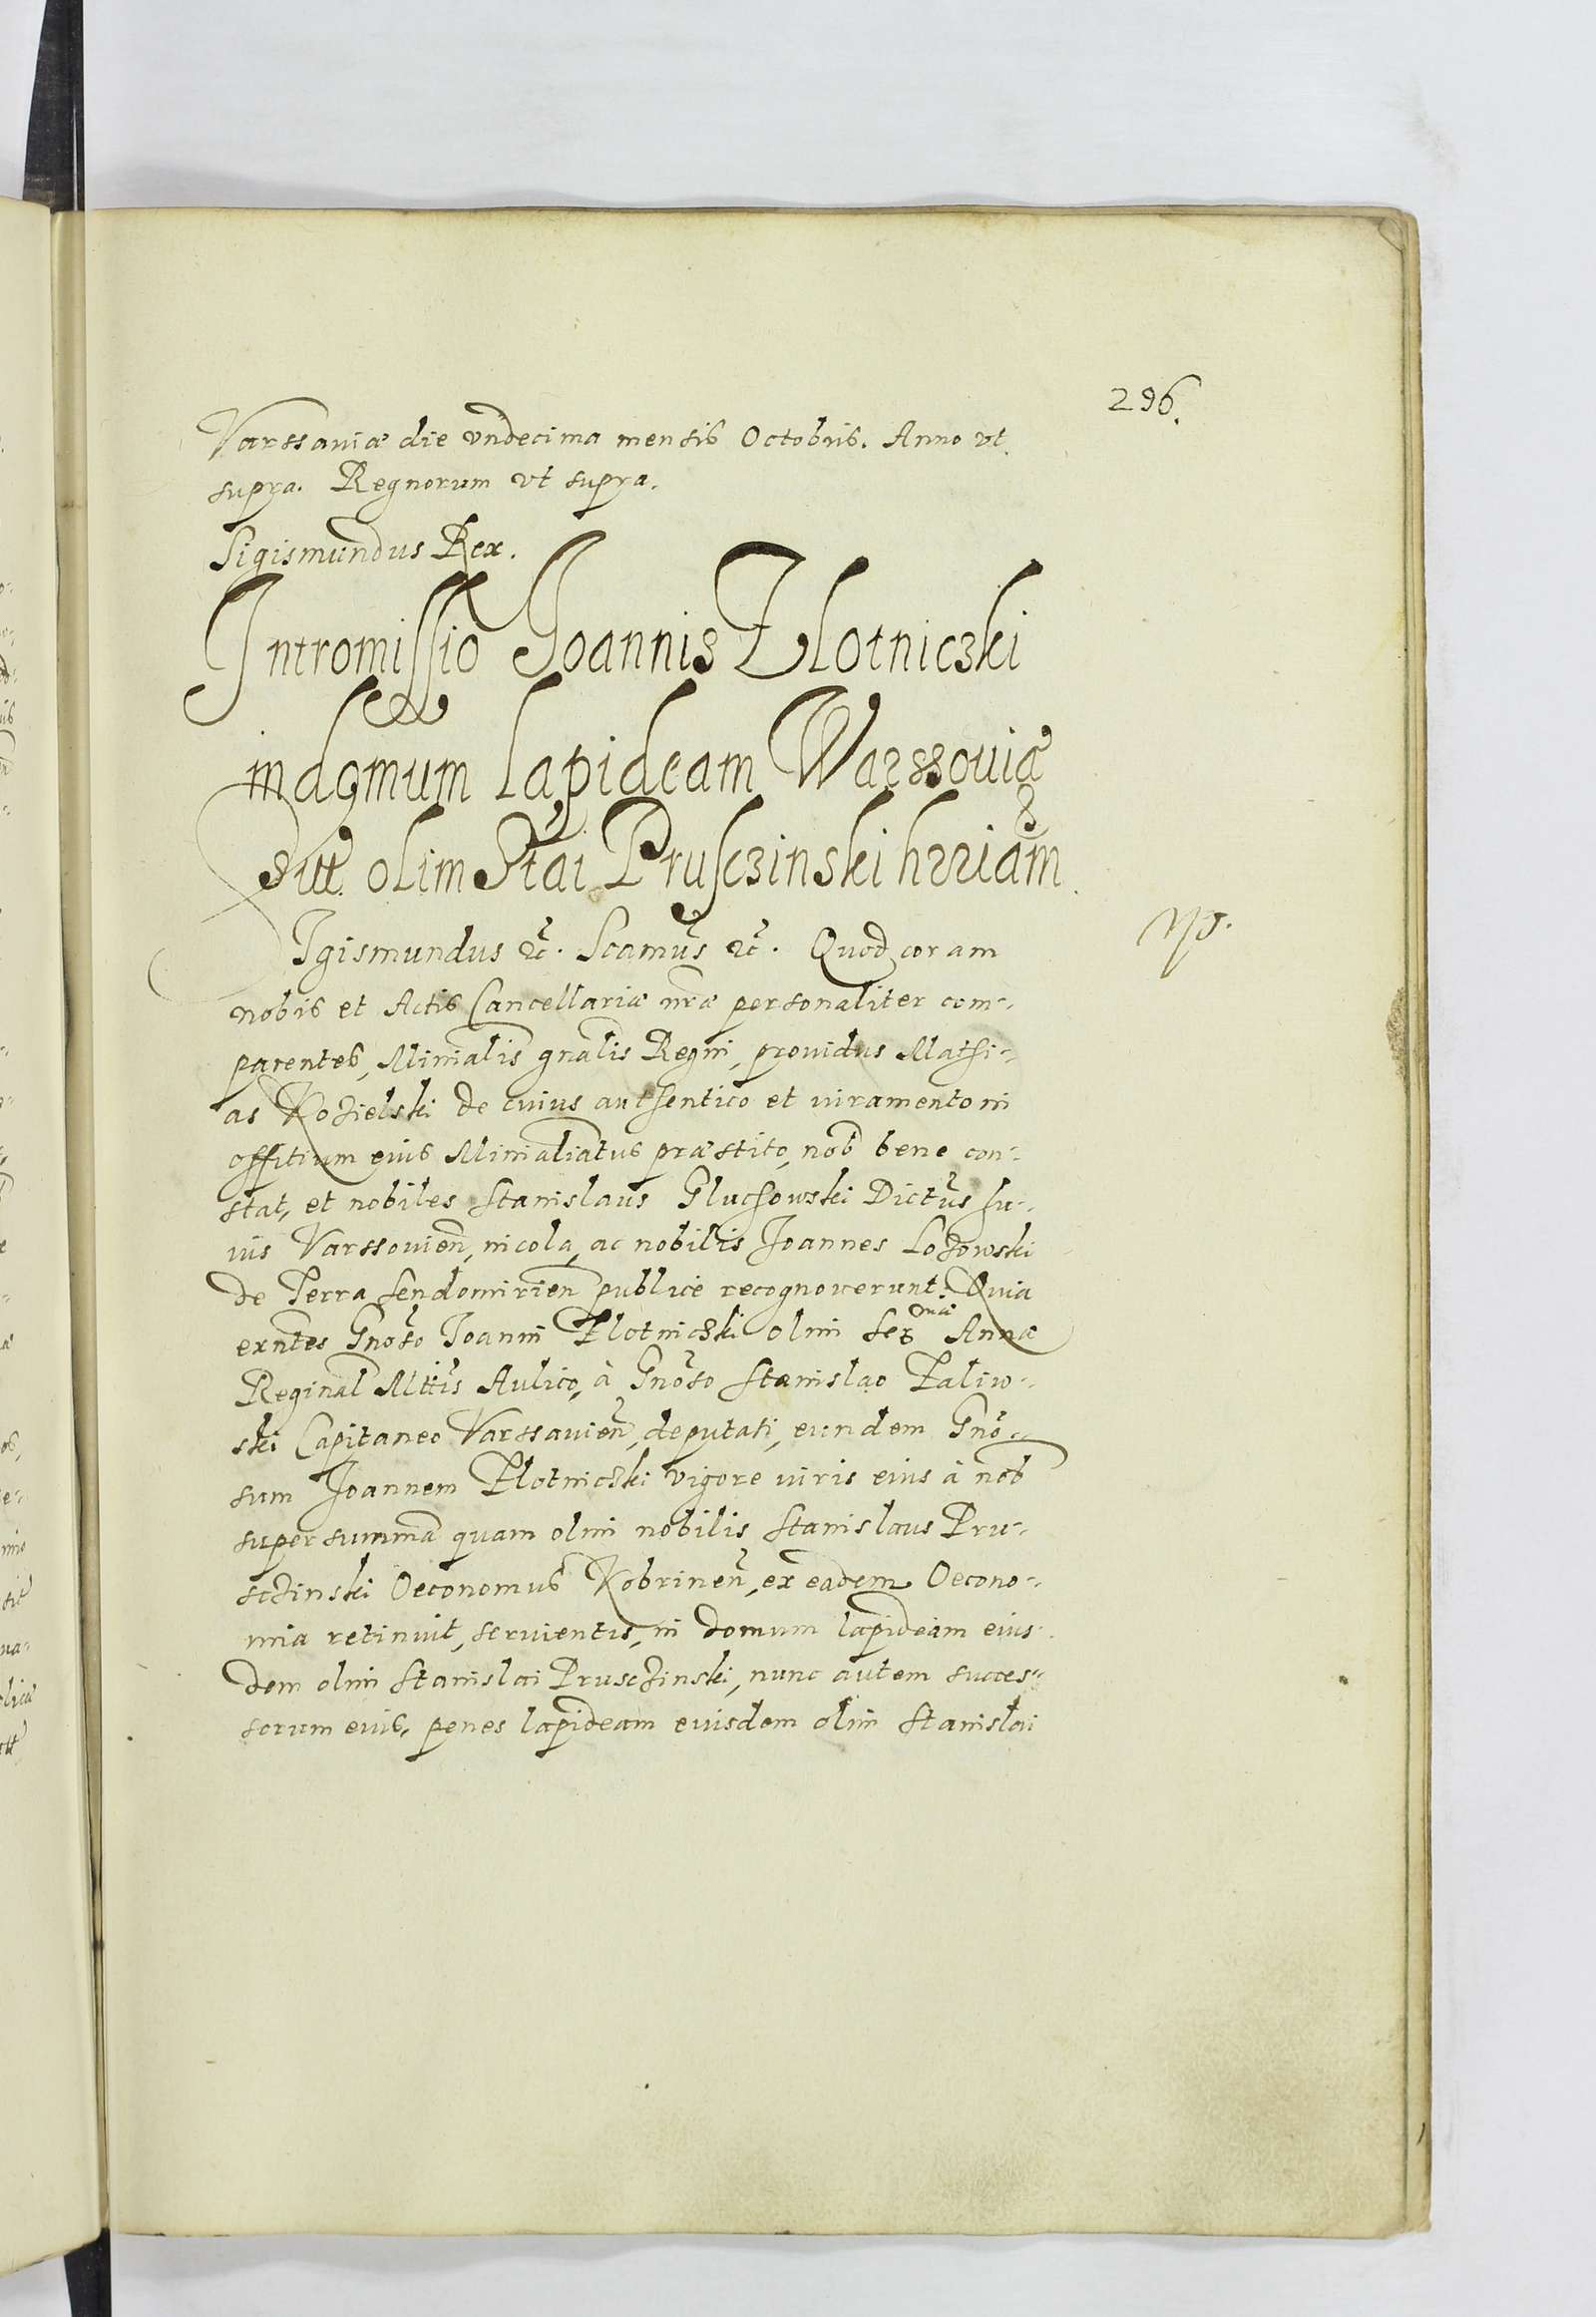 296.
Varssauiæ die vndecima mensis Octobris. Anno vt
supra. Regnorum vt supra.
Sigismundus Rex.
Intromissio Joannis Zlotniczki
in domum lapideam Warssouiæ
olim Stai Prusczinski
Sigismundus ꝛc̃. Scamus ꝛc̃. Quod coram
nobis et Actis Cancellariæ nræ personaliter com-
parentes, Minialis gnalis Regni, prouidus Mathi-
as Kozielski de cuius authentico et iuramento in
offitium eius Minialiatus præstito, nob bene con-
stat, et nobiles Stanislaus Gluchowski Dictus
Varssouien, incola, ac nobilis Joannes Lozowski
de Terra Sendomirien publice recognouerunt. Quia
exntes Gnoso Joanni Zlotniczki olim Ser mæ Annæ
Reginal Mttis Aulico, à Gnoso Stanislao Zaliw-
ski Capitaneo Varssauien, deputati, eundem Gno-
sum Joannem Zlotniczki vigore iuris eius à nob
super summa quam olim nobilis Stanislaus Pru-
sczinski Oeconomus Kobrinen, ex eadem Oecono-
mia retinuit, seruientis, in domum lapideam eius-
dem olim Stanislai Prusczinski, nunc autem succes-
sorum eius, penes lapideam eiusdem olim Stanislai